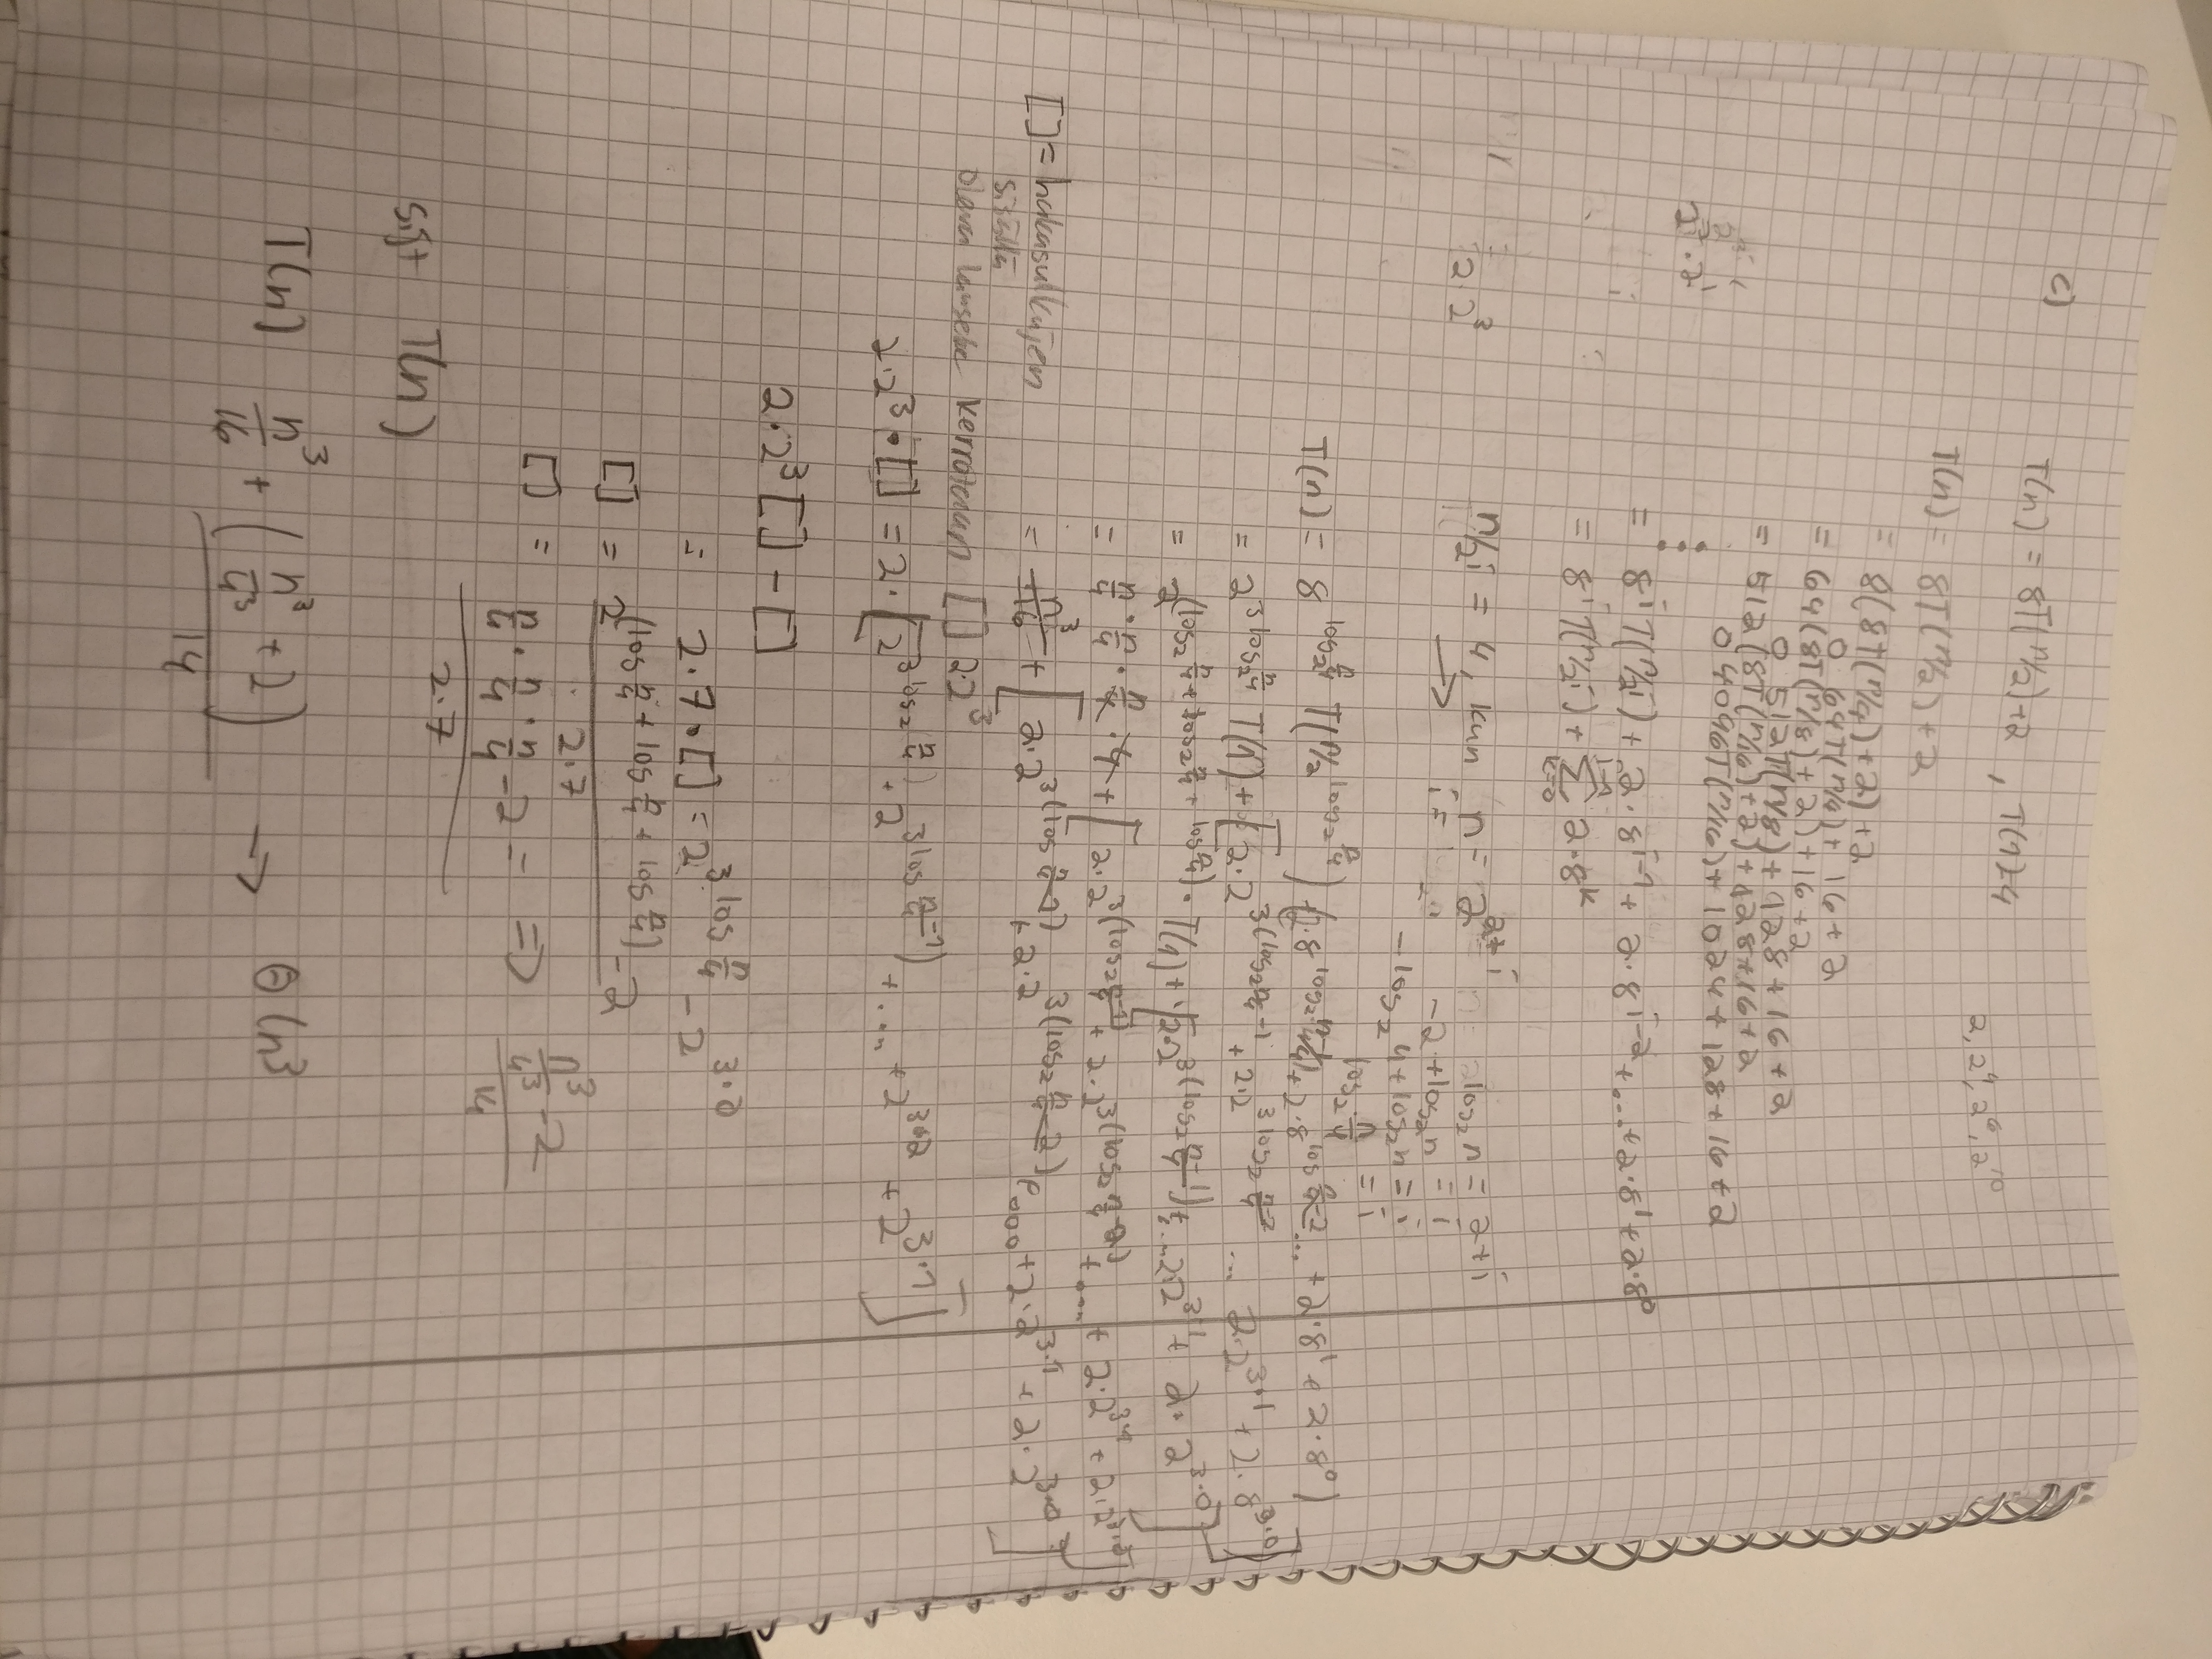 c)
T(n) = 8T(n/2)+2 , T(1)=4
2, 2⁴, 2⁶, 2¹⁰
T(n) = 8T(n/2)+2
= 8(8T(n/4)+2)+2
64T(n/4)+16+2
= 64(8T(n/8)+2)+16+2
512T(n/8)+128+16+2
= 512(8T(n/16)+2)+128+16+2
4096T(n/16)+1024+128+16+2
⋮
= 8ⁱT(n/2ⁱ)+2·8ⁱ⁻¹+2·8ⁱ⁻²+...+2·8¹+2·8⁰
= 8ⁱT(n/2ⁱ)+ Σ 2·8ᵏ
2·2³
n/2ⁱ = 4, kun n = 2²⁺ⁱ
→ i =
log₂n = 2+i
-2+log₂n = i
-log₂4+log₂n = i
log₂ n/4 = i
T(n) = 8^(log₂ n/4) T(n/2^(log₂ n/4)) + (2·8^(log₂ n/4-1) + 2·8^(log n/4-2) ... + 2·8¹ + 2·8⁰)
= 2^(3 log₂ n/4) T(1) + [2·2^(3(log₂ n/4-1) + 2·2^(3 log₂ n/4-2) ... 2·2^(3·1) + 2·8^(3·0)]
= 2^(log₂ n/4 + log₂ n/4 + log n/4) · T(1) + [2·2^(3(log₂ n/4-1)) + ... 2·2^(3·1) + 2·2^(3·0)]
= n/4 · n/4 · n/4 · 4 + [2·2^(3(log₂ n/4-1)) + 2·2^(3(log₂ n/4-2)) + ... + 2·2^(3·1) + 2·2^(3·0)]
[] = hakasulkujen
sisältä
= n³/16 + [2·2^(3(log n/4-1)) + 2·2^(3(log₂ n/4-2)) + ... + 2·2^(3·1) + 2·2^(3·0)]
olevan lauseke kerrotaan [] 2·2³
2·2³·[] = 2·[2^(3 log₂ n/4) + 2^(3 log n/4-1) + ... + 2^(3·2) + 2^(3·1)]
2·2³[] - []
= 2·7·[] = 2^(3 log n/4) - 2^(3·0)
[] = 2^(log n/4 + log n/4 + log n/4) - 2
2·7
[] = n/4 · n/4 · n/4 - 2 = ⇒ n³/4³ - 2
2·7
14
sijt T(n)
T(n) n³/16 + (n³/4³ + 2) → Θ(n³
14